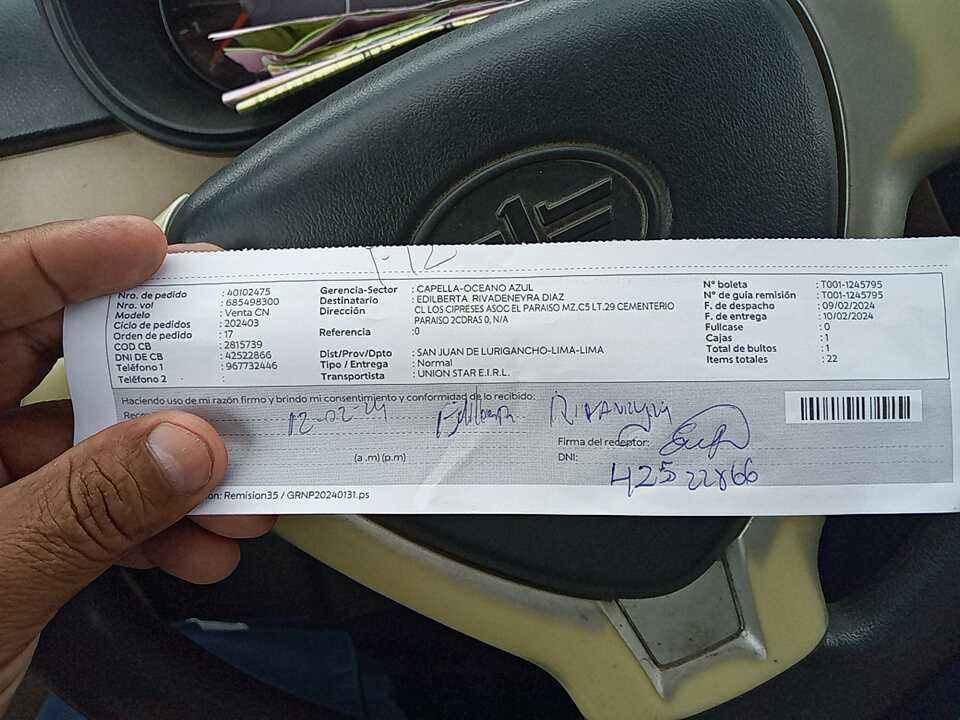 F-12
Nro. de pedido : 40102475
Nro. vol : 685498300
Modelo : Venta CN
Ciclo de pedidos : 202403
Orden de pedido : 17
COD CB : 2815739
DNI DE CB : 42522866
Teléfono 1 : 967732446
Teléfono 2 :
Gerencia-Sector : CAPELLA-OCEANO AZUL
Destinatario : EDILBERTA RIVADENEYRA DIAZ
Dirección : CL LOS CIPRESES ASOC EL PARAISO MZ.C5 LT.29 CEMENTERIO
PARAISO 2CDRAS 0, N/A
Referencia :0
Dist/Prov/Dpto : SAN JUAN DE LURIGANCHO-LIMA-LIMA
Tipo / Entrega : Normal
Transportista : UNION STAR E.I.R.L.
N° boleta : T001-1245795
N° de guía remisión : T001-1245795
F. de despacho : 09/02/2024
F. de entrega : 10/02/2024
Fullcase : 0
Cajas : 1
Total de bultos : 1
Items totales : 22
Haciendo uso de mi razón firmo y brindo mi consentimiento y conformidad de lo recibido:
12-02-24
(a .m) (p.m)
Firma del receptor:
DNI: 42522866
on: Remision35 / GRNP20240131.ps